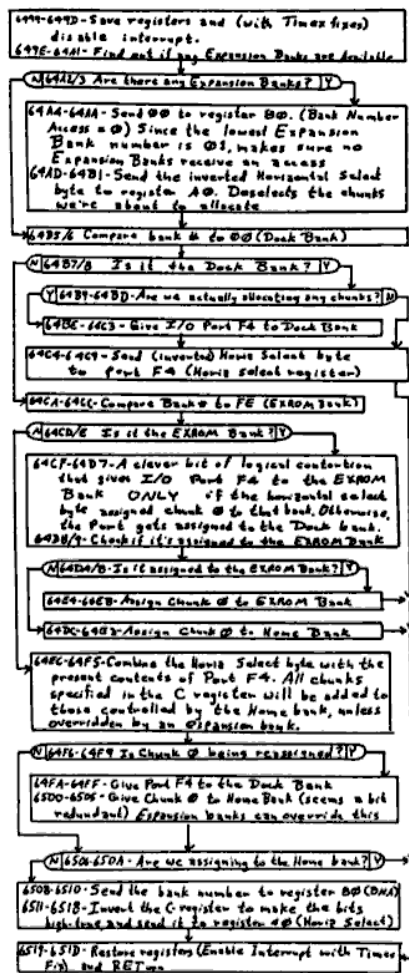 6499-649D - Save registers and (with Timex fixes)
disable interrupt.
649E-64A1 - Find out if any Expansion Banks are Available
N 64A2/3 Are there any Expansion Banks? Y
64A4-64AA - Send 00 to register B0. (Bank Number
Access = 0) Since the lowest Expansion
Bank number is 01, makes sure no
Expansion Banks receive an access
64AD-64B1 - Send the inverted Horizontal Select
byte to register A0. Deselects the chunks
we're about to allocate
64B5/6 Compare bank # to 00 (Dock Bank)
N 64B7/8 Is it the Dock Bank? Y
Y 64B9-64BD - Are we actually allocating any chunks? N
64BE-64C3 - Give I/O Port F4 to Dock Bank
64C4-64C9 - Send (inverted) Horiz Select byte
to Port F4 (Horiz Select register)
64CA-64CC - Compare Bank # to FE (EXROM Bank)
N 64CD/E Is it the EXROM Bank? Y
64CF-64D7 - A clever bit of logical contortion
that gives I/O Port F4 to the EXROM
Bank ONLY if the horizontal select
byte assigned chunk 0 to that bank. Otherwise,
the Port gets assigned to the Dock bank.
64D8/9 - Check if it's assigned to the EXROM Bank
N 64DA/B - Is it assigned to the EXROM Bank? Y
64E4-64EB - Assign Chunk 0 to EXROM Bank
64DC-64E3 - Assign Chunk 0 to Home Bank
64EC-64F5 - Combine the Horiz Select byte with the
present contents of Port F4. All chunks
specified in the C register will be added to
those controlled by the Home bank, unless
overridden by an expansion bank.
N 64F6-64F9 Is Chunk 0 being reassigned? Y
64FA-64FF - Give Port F4 to the Dock Bank
6500-6505 - Give Chunk 0 to Home Bank (seems a bit
redundant) Expansion banks can override this
N 6506-650A - Are we assigning to the Home bank? Y
650B-6510 - Send the bank number to register B0 (BNA)
6511-6518 - Invert the C-register to make the bits
high-true, and send it to register A0 (Horiz Select)
6519-651D - Restore registers (Enable Interrupt with Timex
Fix) and RETurn